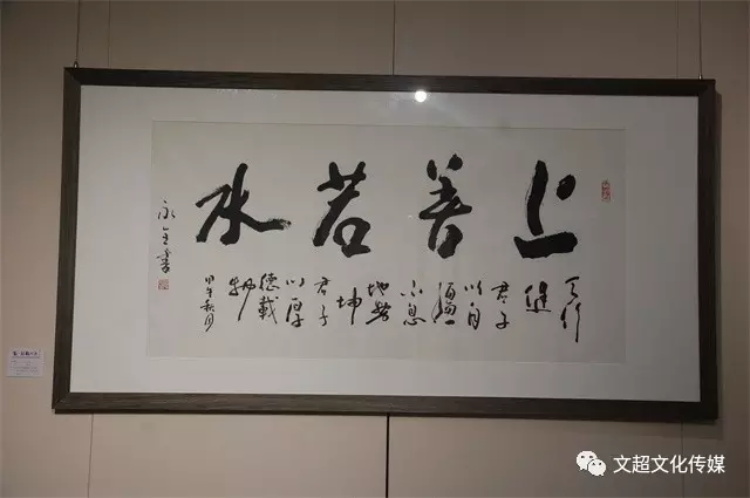 上善若水
天行
健
君子
以自
彊
不息
地勢
坤
君子
以厚
德載
物
甲午秋月
永 書
文超文化传媒